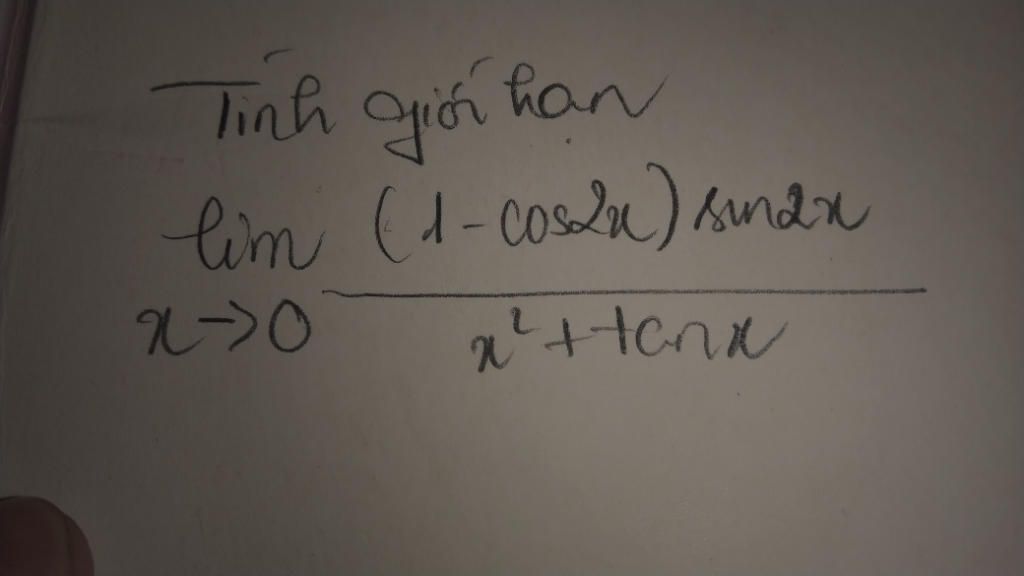 Tính giới hạn
lim (1-cos2x) sin2x
x→0 x²+tanx